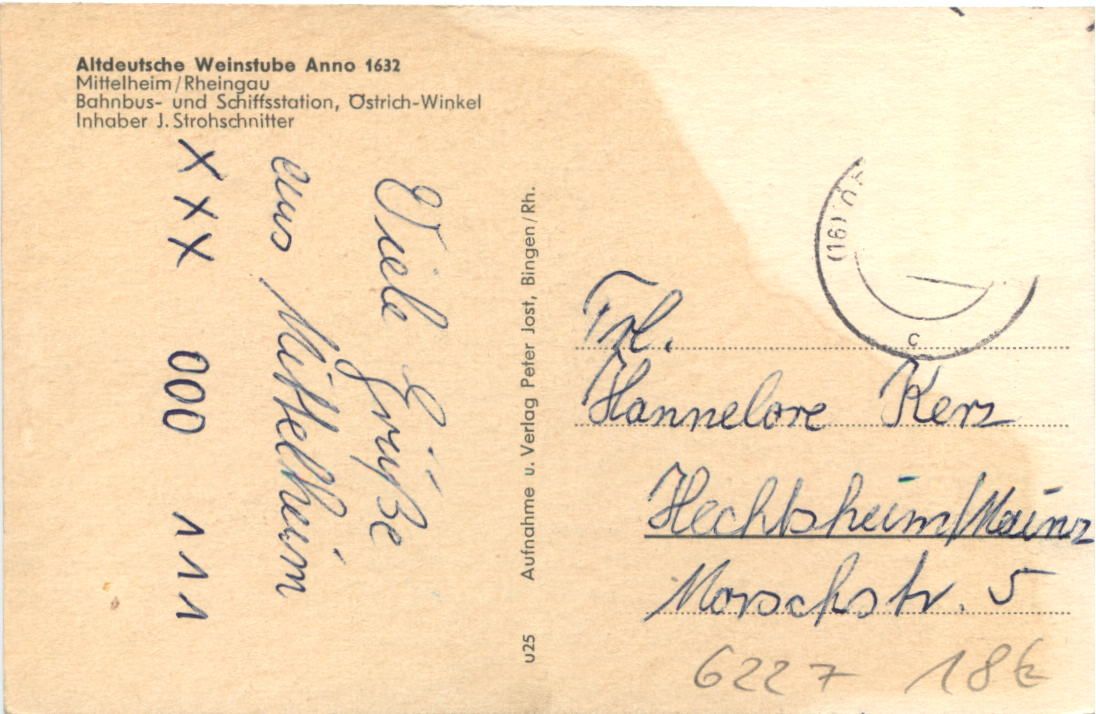 Altdeutsche Weinstube Anno 1632
Mittelheim/Rheingau
Bahnbus- und Schiffsstation, Östrich-Winkel
Inhaber J. Strohschnitter
Viele Grüße
aus Mittelheim
XXX 000 111
Aufnahme u. Verlag Peter Jost, Bingen/Rh.
u25
(16)
c
Frl.
Hannelore Kerz
Hechtsheim/Mainz
Morschstr. 5
6227 18